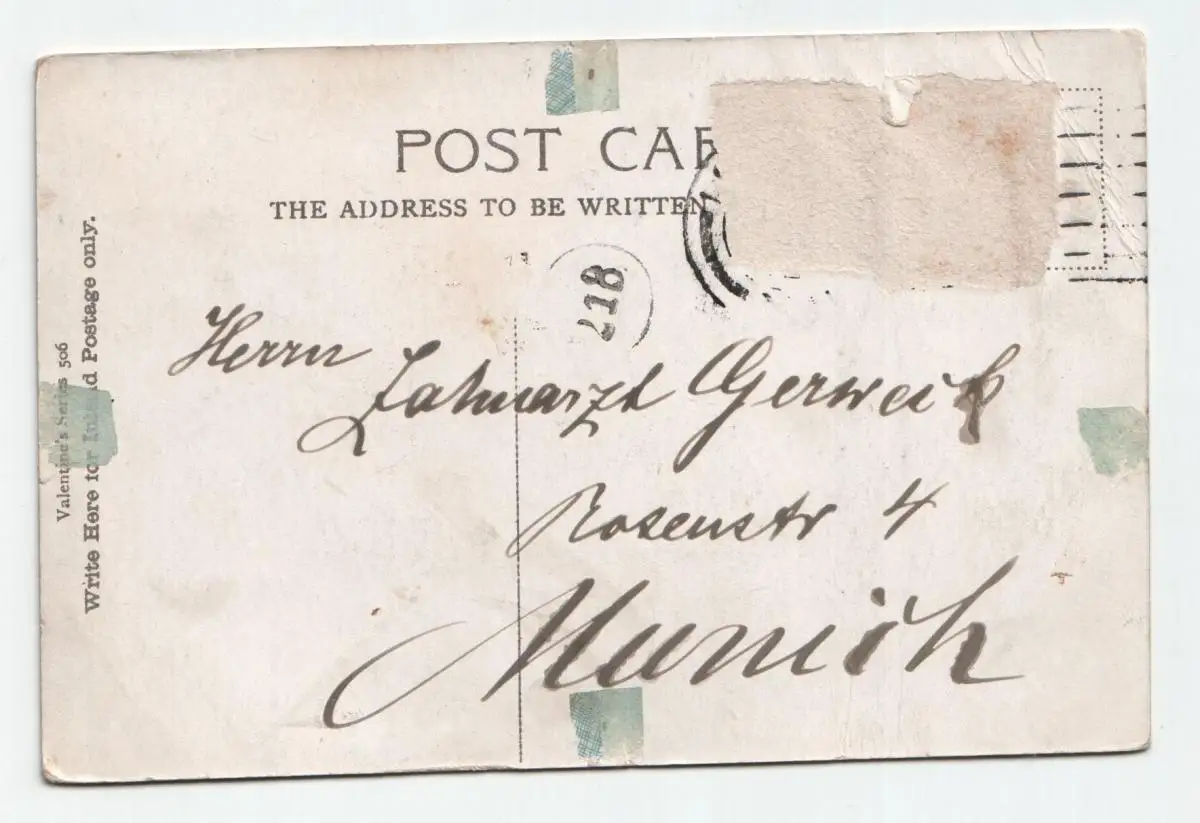 POST CAR
THE ADDRESS TO BE WRITTEN
218
Valentine's Series 506
Write Here for Inland Postage only.
Herrn
Zahnarzt Gerweck
Rosenstr 4
Munich